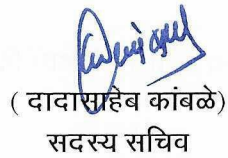 ( दादासाहेब कांबळे)
सदस्य सचिव